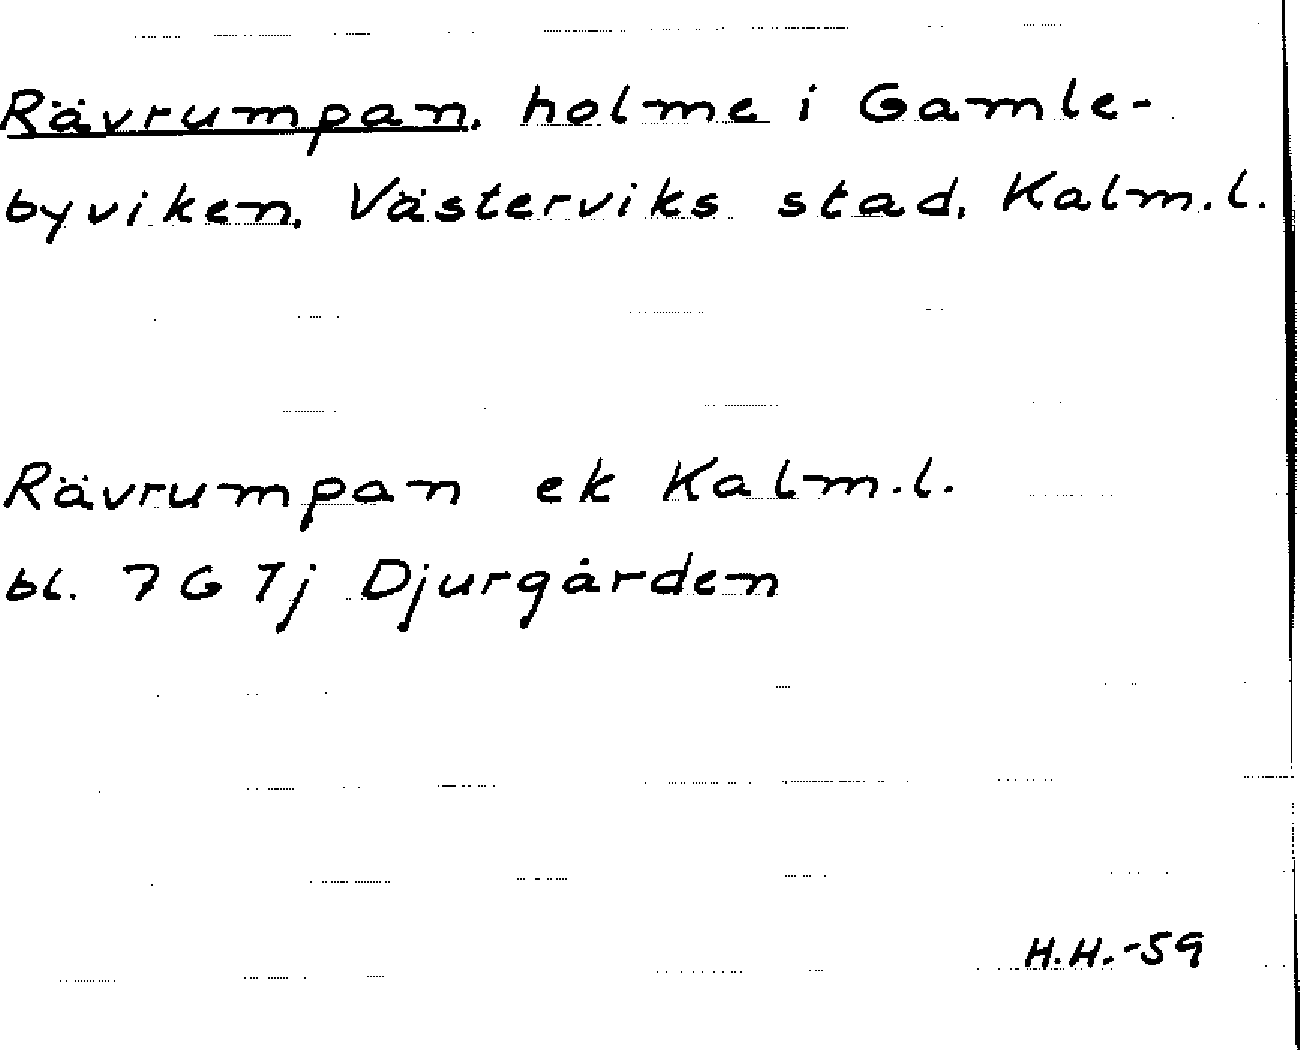 Rävrumpan, holme i Gamle-
byviken, Västerviks stad, Kalm.l.
Rävrumpan ek Kalm.l.
bl. 7G7j Djurgården
H.H.-59